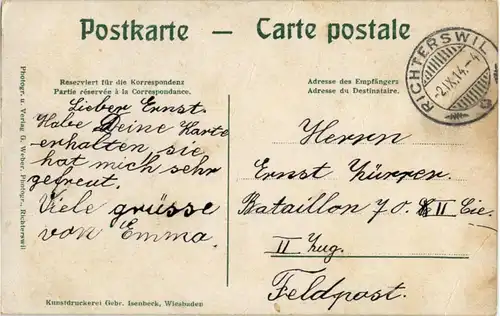 Postkarte — Carte postale
RICHTERSWIL
-2.IX.14.-4
Reserviert für die Korrespondenz
Partie réservée à la Correspondance.
Adresse des Empfängers
Adresse du Destinataire.
Lieber Ernst.
Habe Deine Karte
erhalten, sie
hat mich sehr
gefreut.
Viele grüsse
von Emma.
Herrn
Ernst Zürrer
Bataillon 70. II Cie
II Zug.
Feldpost.
Photogr. u. Verlag G. Weber, Photogr., Richterswil
Kunstdruckerei Gebr. Isenbeck, Wiesbaden